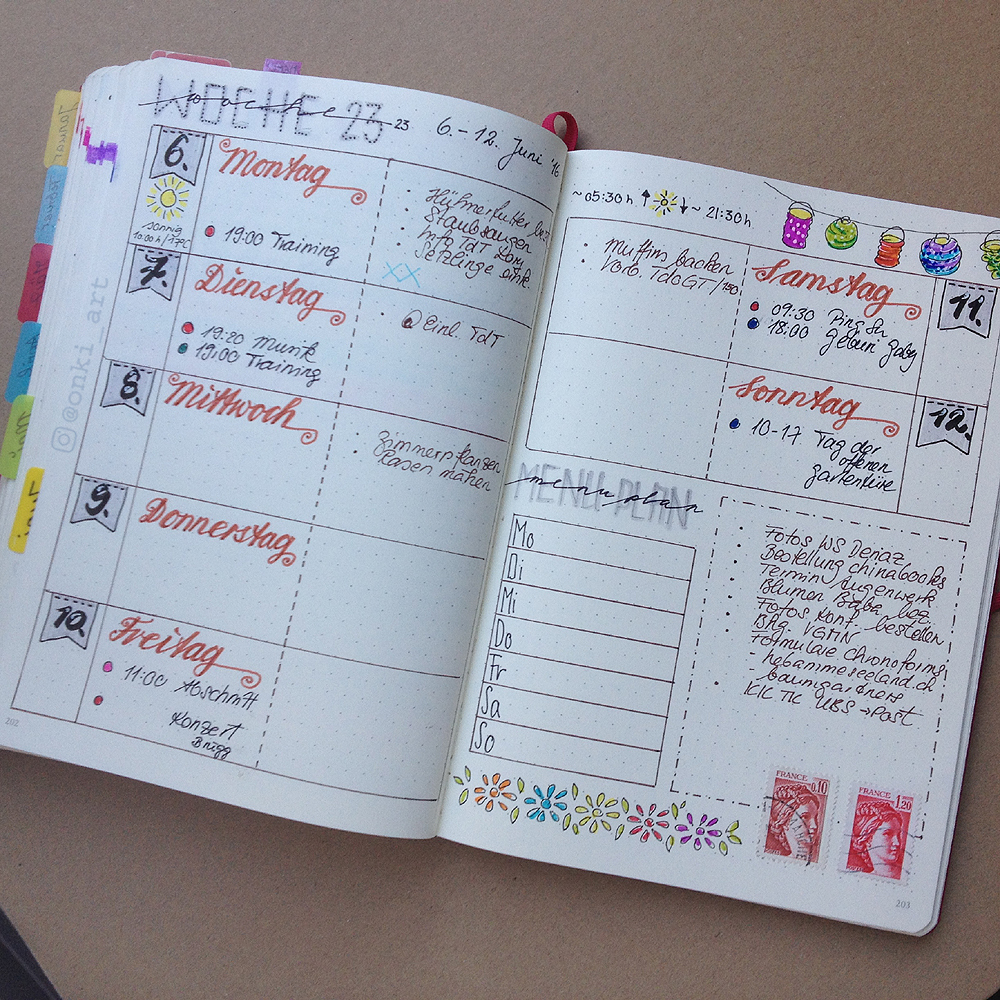 WOCHE 23
woche 23
6.-12. Juni '16
6.
Montag
sonnig
19:00 Training
Hühnerfutter
Staubsaugen
Info TdT
Setzlinge
7.
Dienstag
19:20 Musik
19:00 Training
Einl. TdT
8.
Mittwoch
Zimmerpflanzen
Rasen mähen
9.
Donnerstag
10.
Freitag
11:00 Abschnitt
Konzert
Brügg
202
@onki_art
Januar
~05:30h ↑ ↓ ~ 21:30h
Muffins backen
Vorb. TdoGT/
Samstag
11.
09:30
18:00 Gaby
Sonntag
12.
10-17 Tag der
offenen
Gartentüre
MENU-PLAN
menu plan
Mo
Di
Mi
Do
Fr
Sa
So
Fotos WS Denaz
Bestellung chinabooks
Termin Augenwerk
Blumen
Fotos Konf. bestellen
Formulare
-hebammeseeland.ch
-baumgartners
UBS → Post
FRANCE 0,10
FRANCE 1,20
203